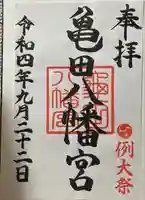 奉拝
例大祭
亀田八幡宮
令和四年九月二十二日